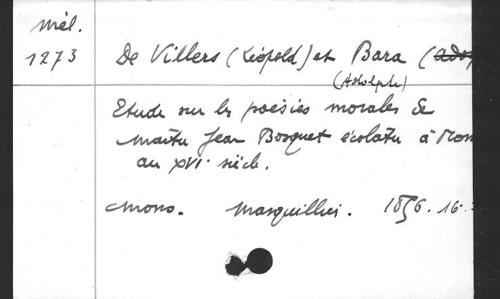 Mél.
1273
De Villers (Léopold) et Bara (
(Adolphe)
Etude sur les poésies morales de
Maître Jean Bosquet écolatre à Mon
au XVIe siècle.
Mons. Masquillier. 1856. 16.